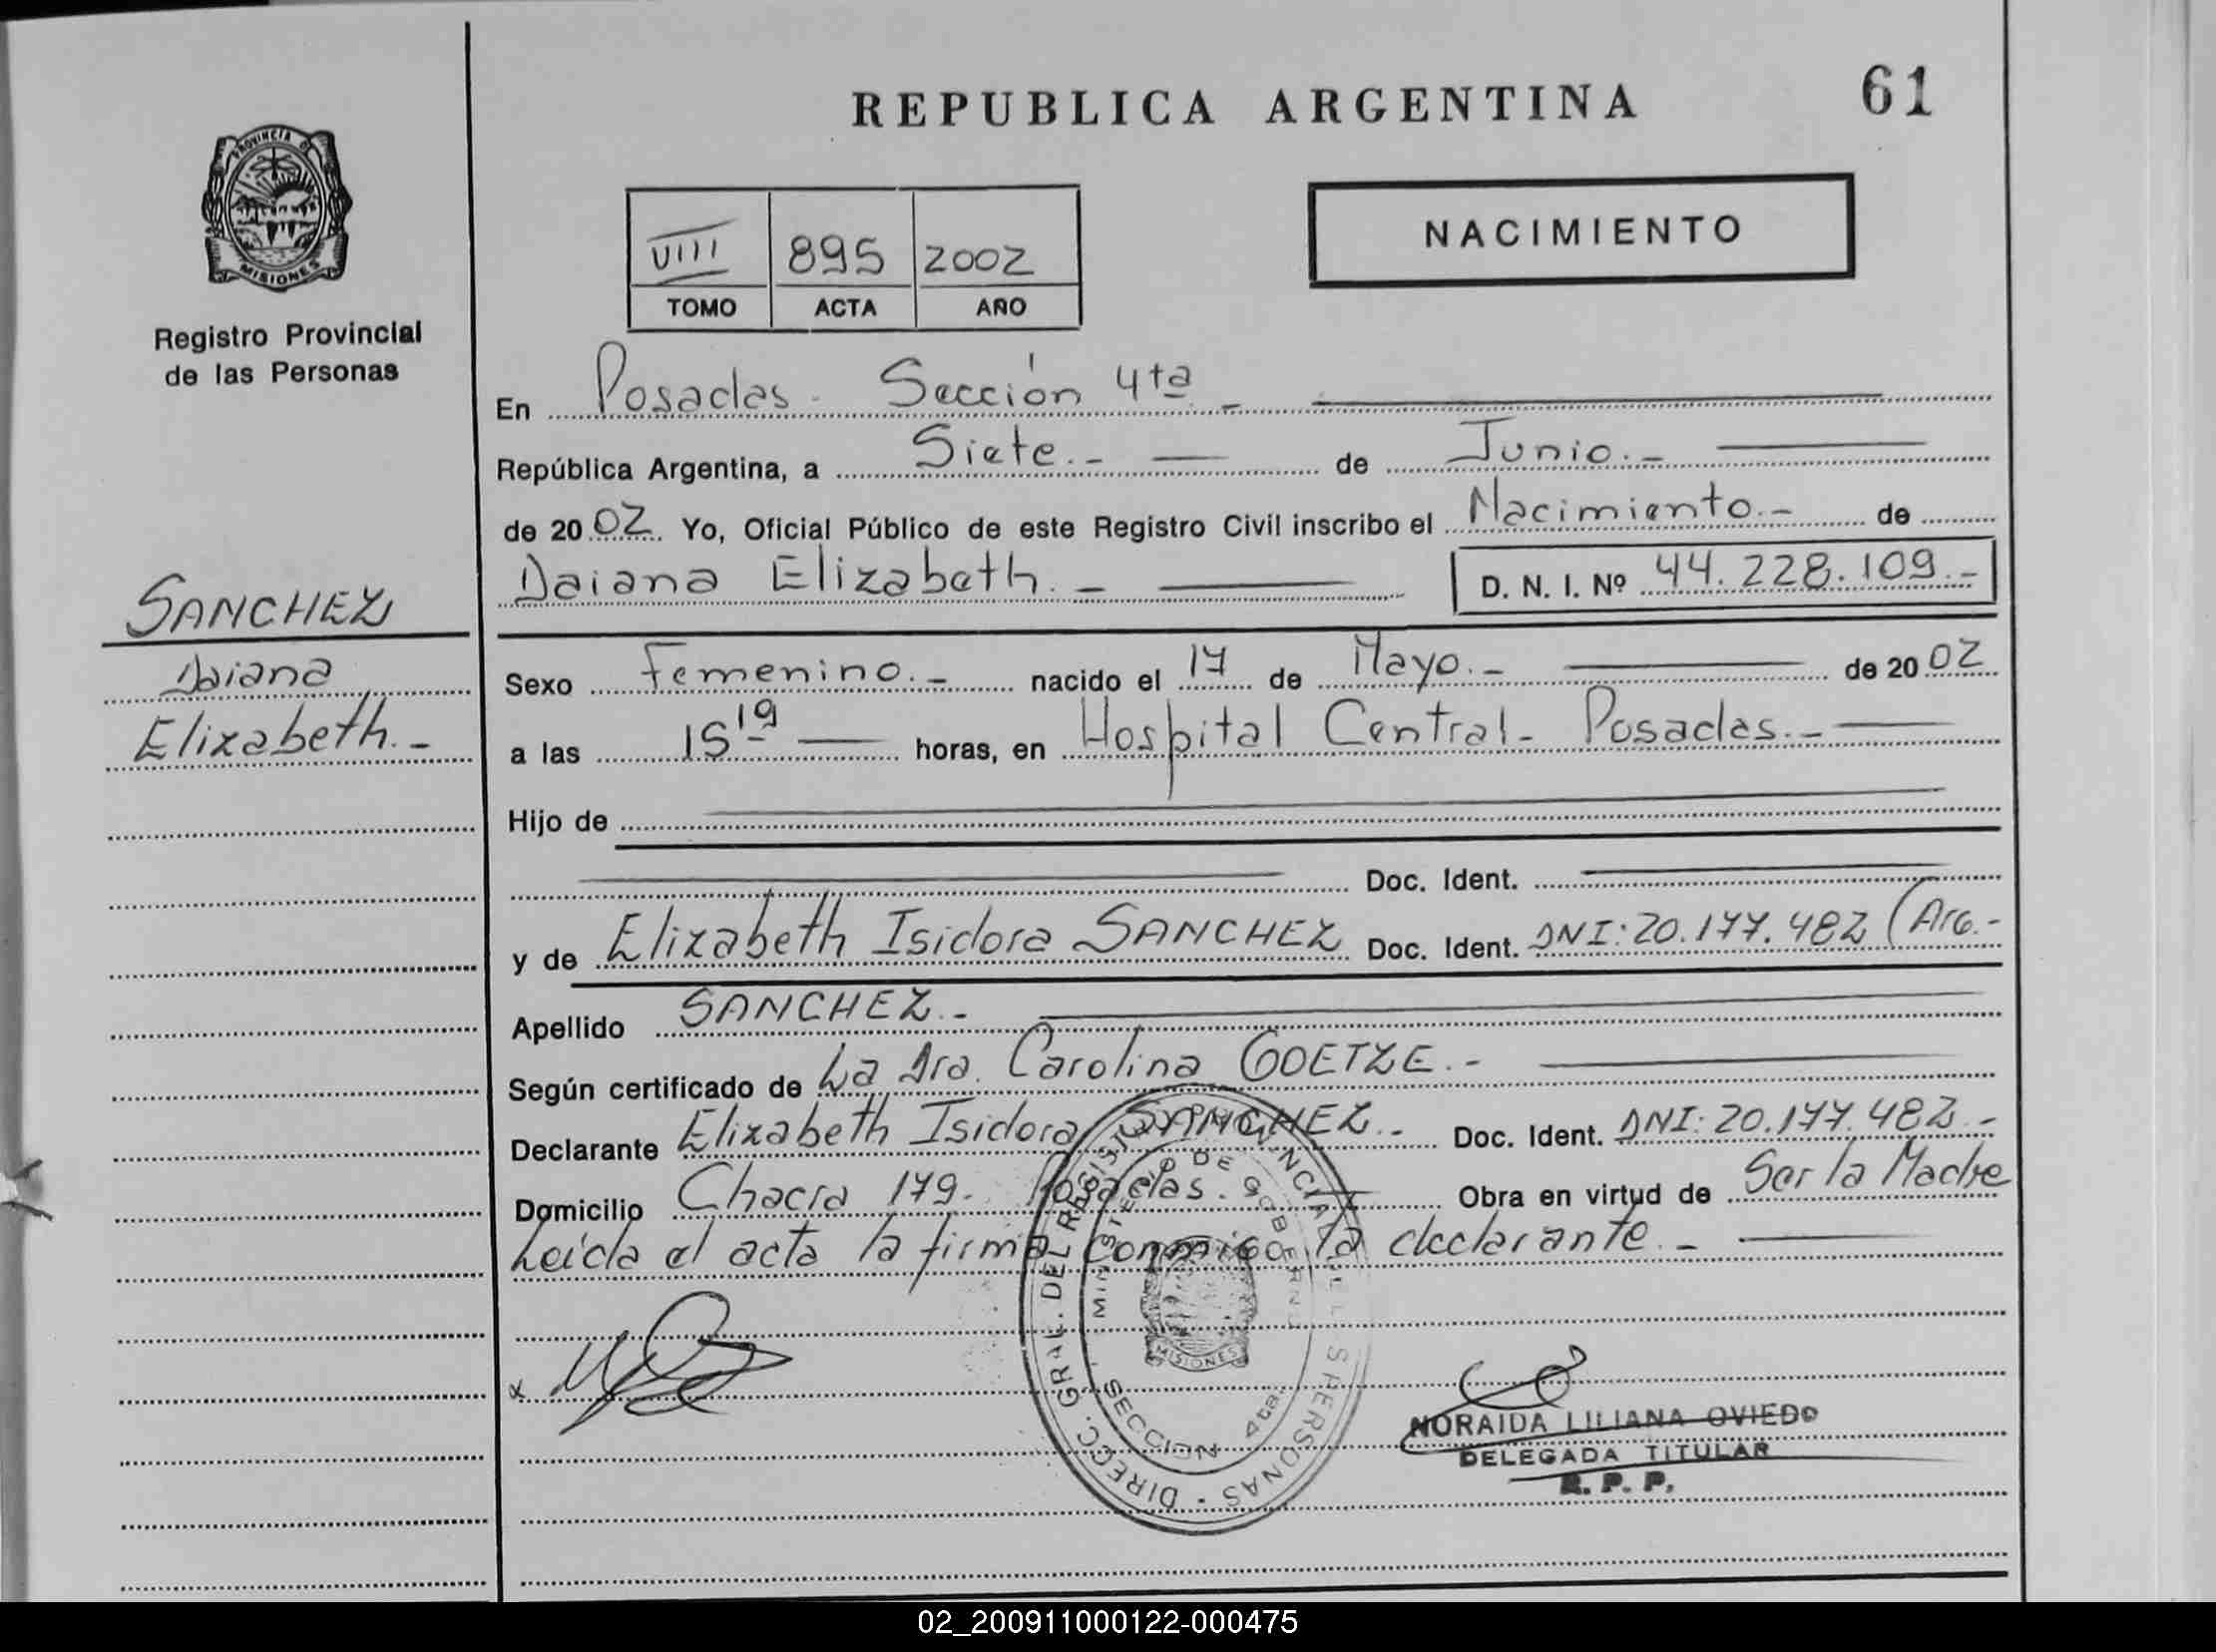 REPUBLICA ARGENTINA
61
PROVINCIA DE
MISIONES
Registro Provincial
de las Personas
NACIMIENTO
VIII 895 2002
TOMO ACTA AÑO
En Posadas - Sección 4ta -
República Argentina, a Siete.- de Junio.-
de 2002 Yo, Oficial Público de este Registro Civil inscribo el Nacimiento.- de
Daiana Elizabeth.- D. N. I. Nº 44.228.109.-
SANCHEZ
Daiana
Elizabeth.-
Sexo Femenino.- nacido el 17 de Mayo.- de 2002
a las 15 19 horas, en Hospital Central - Posadas.-
Hijo de
Doc. Ident.
y de Elizabeth Isidora SANCHEZ Doc. Ident. DNI: 20.177.482 (Arg.-
Apellido SANCHEZ.-
Según certificado de La Dra. Carolina GOETZE.-
Declarante Elizabeth Isidora SANCHEZ.- Doc. Ident. DNI: 20.177.482.-
Domicilio Chacra 179. Posadas. Obra en virtud de Ser la Madre
Leída el acta la firma conmigo la declarante.-
x
DIRECC. GRAL. DEL REGISTRO PROVINCIAL DE LAS PERSONAS -
MINISTERIO DE GOBIERNO
MISIONES
SECCION 4ta.
NORAIDA LILIANA OVIEDO
DELEGADA TITULAR
R. P. P.
02_200911000122-000475